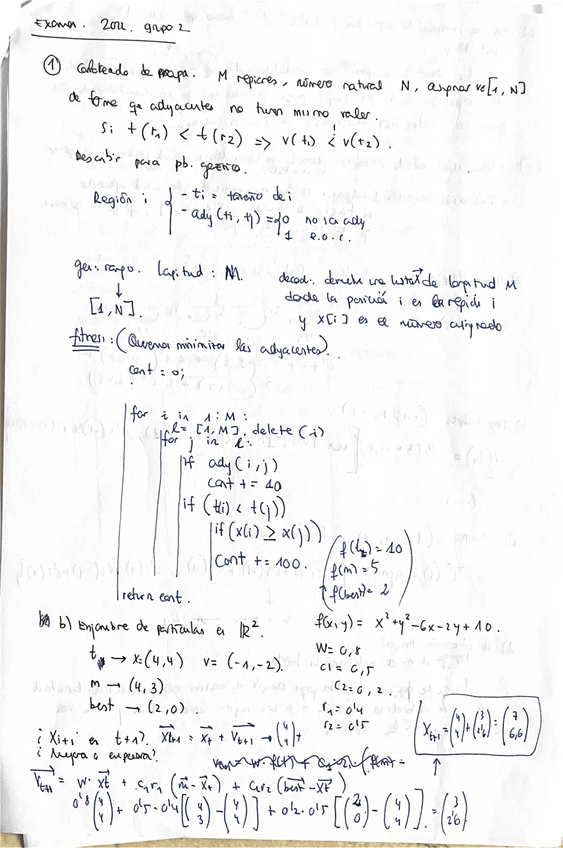 Examen. 2022. grupo 2
① Coloreado de mapa. M regiones, número natural N, asignar v∈[1, N]
de forma que adyacentes no tienen mismo valor.
Si t(r1) < t(r2) => v(r1) < v(r2).
Describir para pb. genérico.
Región i { - ti = tamaño de i
- ady(ti, tj) = { 0 no son ady
1 e.o.c.
gen. rango. Longitud: M.
↓
[1, N].
decod. devuelve una lista de longitud M
donde la posición i es la región i
y x[i] es el número asignado
fitness: (Queremos minimizar las adyacentes).
cont = 0;
for i in 1:M:
l = [1, M]. delete(i)
for j in l:
if ady(i, j)
cont += 10
if (t(i) < t(j))
if (x(i) ≥ x(j))
cont += 100.
return cont.
f(t) = 10
f(m) = 5
f(best) = 2
b) Enjambre de partículas en ℝ².
f(x, y) = x² + y² - 6x - 2y + 10.
t → x = (4, 4) v = (-1, -2).
m → (4, 3)
best → (2, 0).
W = 0,8
c1 = 0,5
c2 = 0,2.
r1 = 0'4
r2 = 0'5
¿Xi+1 en t+1?
¿Mejora o empeora?
Xt+1 = Xt + Vt+1 → (4 4) +
Xt+1 = (4 4) + (3 2'6) = (7 6,6)
Vt+1 = w · Xt + c1r1 (m - Xt) + c2r2 (best - Xt)
0'8 (4 4) + 0'5 · 0'4 [(4 3) - (4 4)] + 0'2 · 0'5 [(2 0) - (4 4)] = (3 2'6)